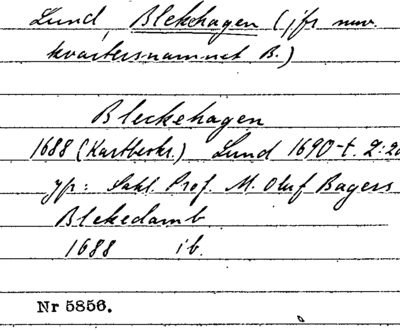 Lund, Blekehagen (jfr nuv.
kvartersnamnet B.)
Bleckehagen
1688 (Kartbeskr.) Lund 1690-t. 2:20
Sahl. Prof. M. Oluf Bagers
Blekedamb
1688 ib.
Nr 5856.